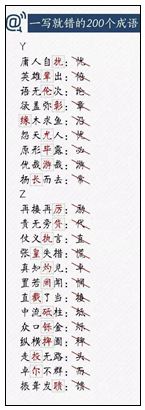 一写就错的200个成语
Y
庸人自扰：忧
英雄辈出：倍
语无伦次：论
欲盖弥彰：章
缘木求鱼：沿
怨天尤人：忧
原形毕露：必
优哉游哉：游
扬长而去：常
Z
再接再厉：励
责无旁贷：代
仗义执言：直
张皇失措：慌
真知灼见：卓
置若罔闻：惘
直截了当：接
中流砥柱：抵
众口铄金：烁
纵横捭阖：俾
走投无路：头
卓尔不群：而
振聋发聩：馈